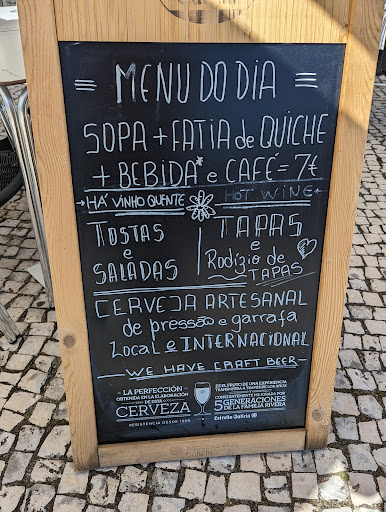 MENU DO DIA
SOPA + FATIA de QUICHE
+ BEBIDA* e CAFÉ = 7€
HÁ VINHO QUENTE HOT WINE
TOSTAS
e
SALADAS
TAPAS
e
Rodízio de
TAPAS
CERVEJA ARTESANAL
de pressão e garrafa
LOCAL e INTERNACIONAL
WE HAVE CRAFT BEER
LA PERFECCIÓN
OBTENIDA EN LA ELABORACIÓN
DE ESTA
CERVEZA
RESIDENCIA DESDE 1906
ES EL FRUTO DE UNA EXPERIENCIA
TRANSMITIDA A TRAVÉS DE LOS AÑOS
CONSTANTEMENTE MEJORADA POR
5 GENERACIONES
DE LA FAMILIA RIVERA
Estrella Galicia